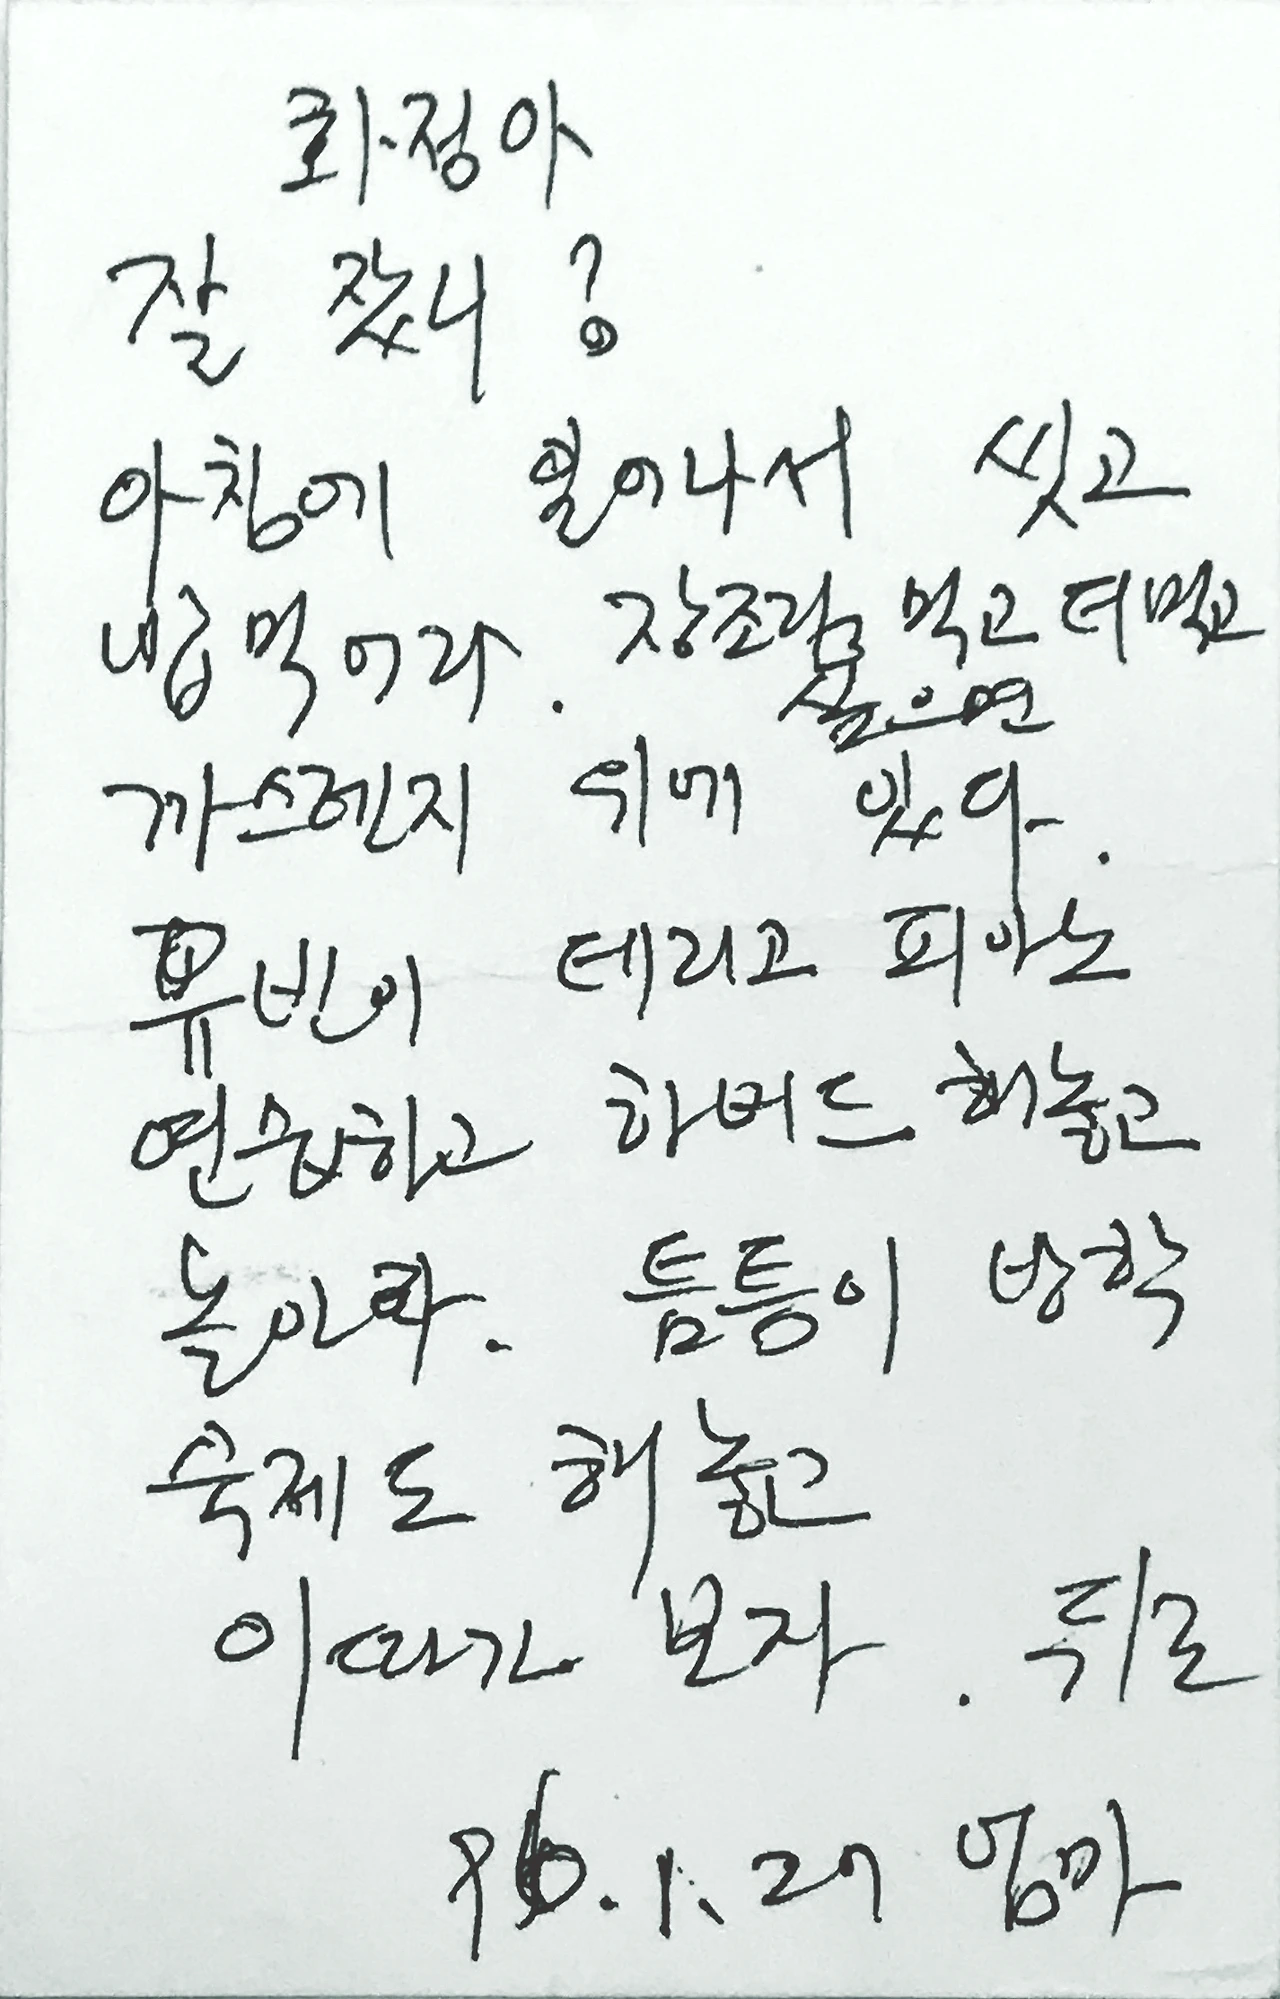 화정아
잘 잤니?
아침에 일어나서 씻고
밥 먹어라. 장조림 먹고 더 먹고
싶으면
까스렌지 위에 있다.
류빈이 데리고 피아노
연습하고 하버드 해놓고
놀아라. 틈틈이 방학
숙제도 해 놓고
이따가 보자. 뒤로
96.1.29 엄마